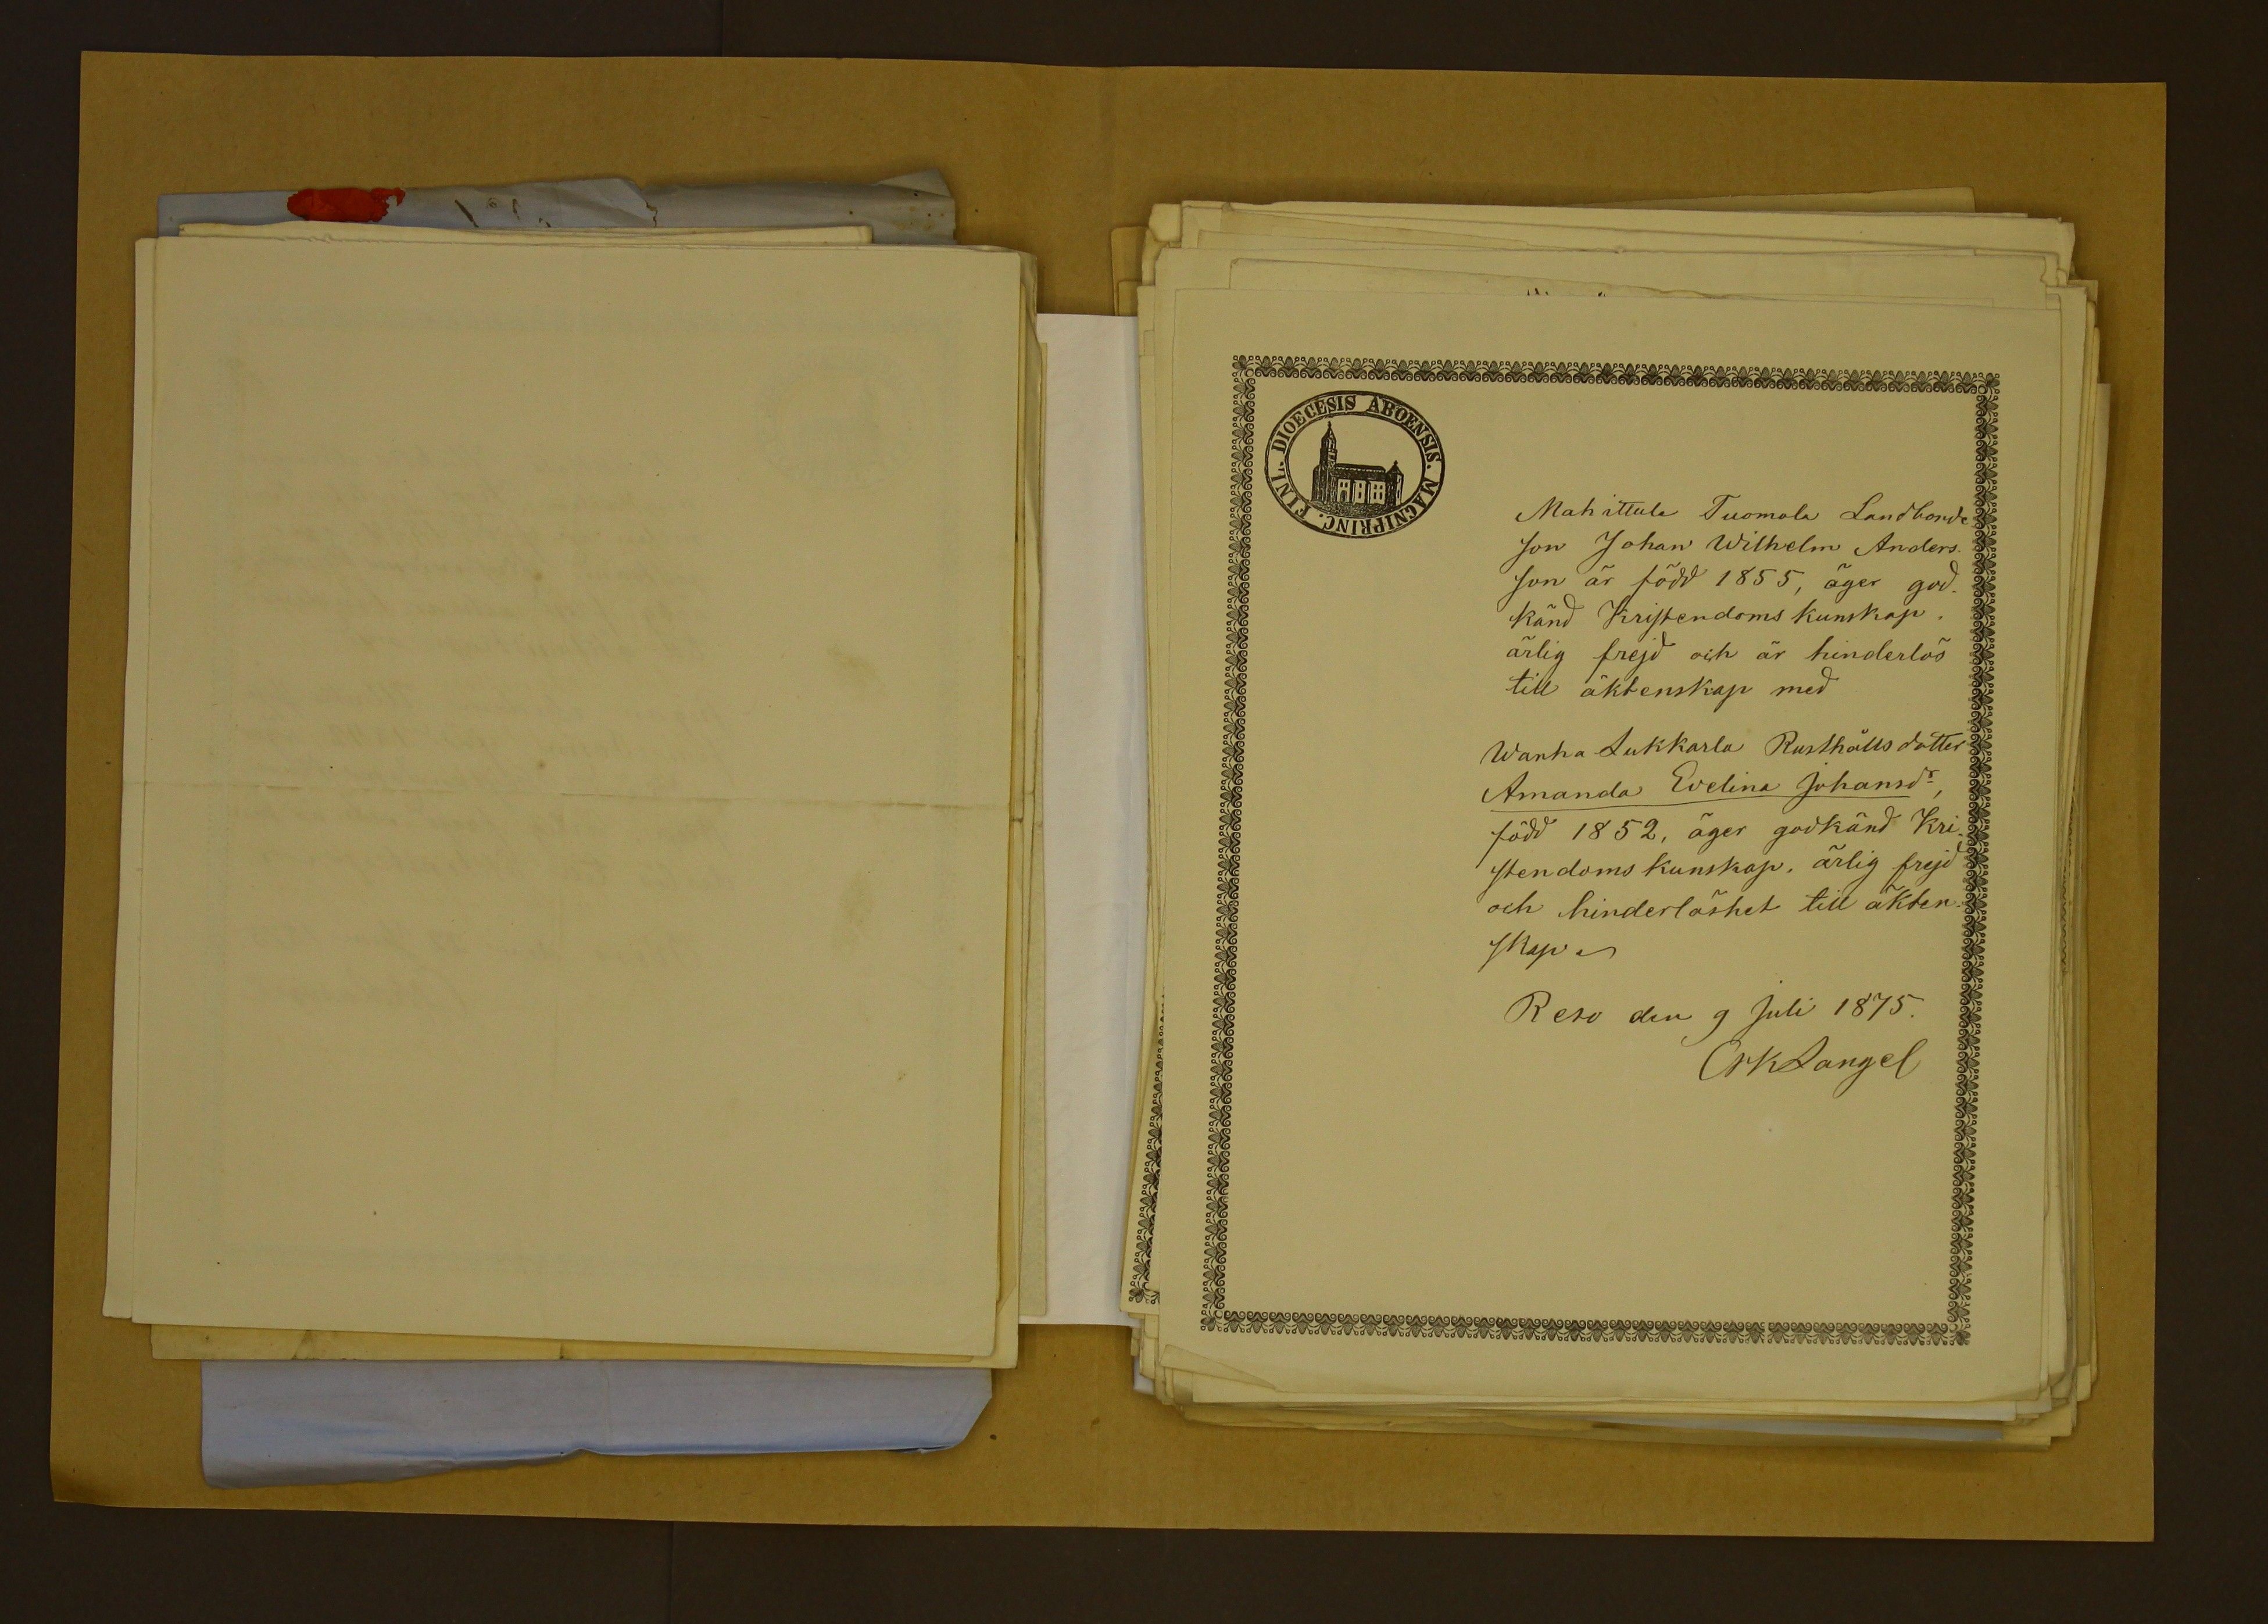 DIOECESIS ABOENSIS. MAGNIPRINC. FINL.
Mahittula Tuomola Landbonde
son Johan Wilhelm Anders-
son är född 1855, äger god-
känd Kristendoms kunskap,
ärlig frejd och är hinderlös
till äktenskap med
Wanha Lukkarla Rusthålls dotter
Amanda Evelina Johansdr,
född 1852, äger godkänd Kri-
stendoms kunskap, ärlig frejd
och hinderlöshet till äkten-
skap
Reso den 9 Juli 1875.
Langel